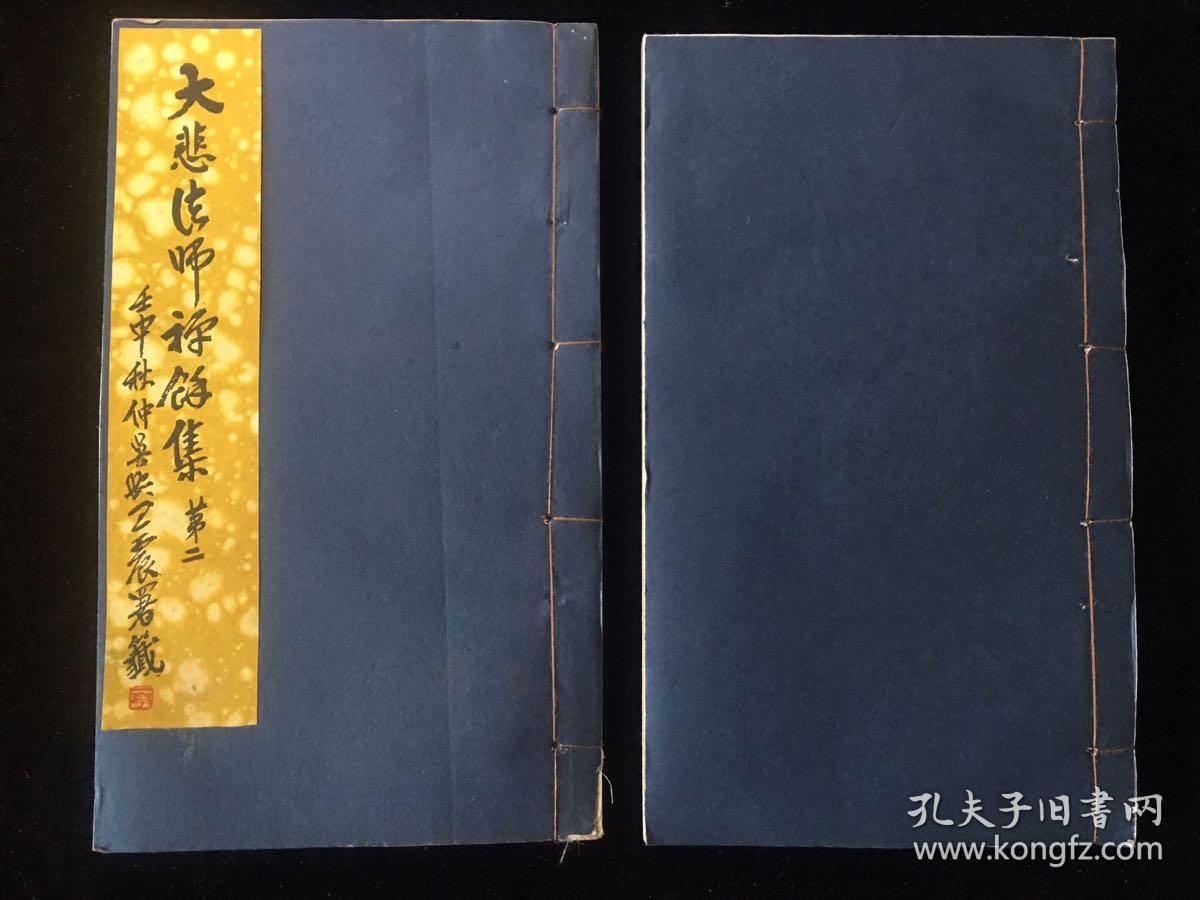 大悲法師禅餘集 第二
壬申秋仲吳興王震署籤
孔夫子旧書网
www.kongfz.com